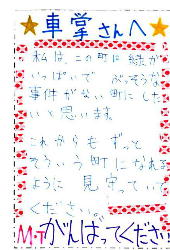 ★車掌さんへ★
私は、この町に緑が
いっぱいで ぶっそうな
事件がない町にした
いと思います。
これからもずっと
そういう町になれる
ように 見守っていて
ください。
M.Tがんばってください